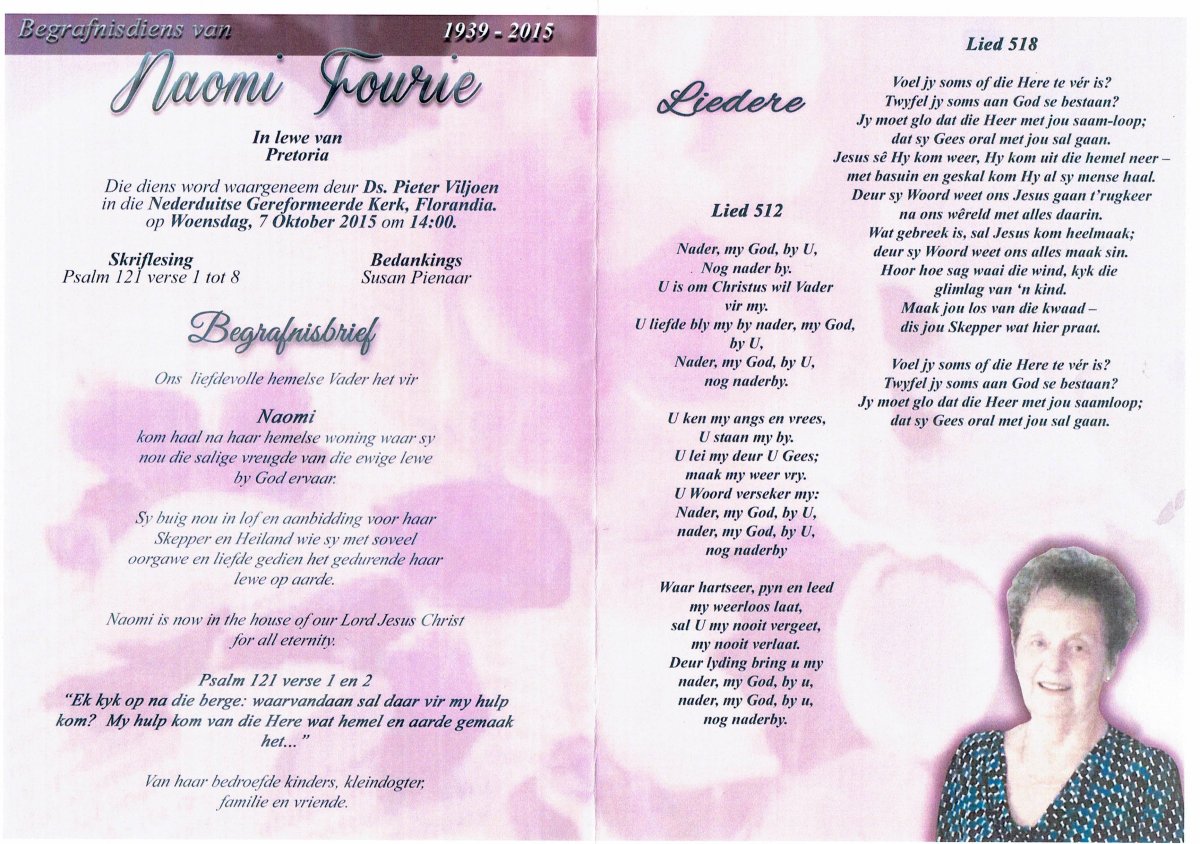 Begrafnisdiens van
1939 - 2015
Naomi Fourie
In lewe van
Pretoria
Die diens word waargeneem deur Ds. Pieter Viljoen
in die Nederduitse Gereformeerde Kerk, Florandia.
op Woensdag, 7 Oktober 2015 om 14:00.
Skriflesing
Psalm 121 verse 1 tot 8
Bedankings
Susan Pienaar
Begrafnisbrief
Ons liefdevolle hemelse Vader het vir
Naomi
kom haal na haar hemelse woning waar sy
nou die salige vreugde van die ewige lewe
by God ervaar.
Sy buig nou in lof en aanbidding voor haar
Skepper en Heiland wie sy met soveel
oorgawe en liefde gedien het gedurende haar
lewe op aarde.
Naomi is now in the house of our Lord Jesus Christ
for all eternity.
Psalm 121 verse 1 en 2
“Ek kyk op na die berge: waarvandaan sal daar vir my hulp
kom? My hulp kom van die Here wat hemel en aarde gemaak
het...”
Van haar bedroefde kinders, kleindogter,
familie en vriende.
Liedere
Lied 512
Nader, my God, by U,
Nog nader by.
U is om Christus wil Vader
vir my.
U liefde bly my by nader, my God,
by U,
Nader, my God, by U,
nog naderby.
U ken my angs en vrees,
U staan my by.
U lei my deur U Gees;
maak my weer vry.
U Woord verseker my:
Nader, my God, by U,
nader, my God, by U,
nog naderby
Waar hartseer, pyn en leed
my weerloos laat,
sal U my nooit vergeet,
my nooit verlaat.
Deur lyding bring u my
nader, my God, by u,
nader, my God, by u,
nog naderby.
Lied 518
Voel jy soms of die Here te vér is?
Twyfel jy soms aan God se bestaan?
Jy moet glo dat die Heer met jou saam-loop;
dat sy Gees oral met jou sal gaan.
Jesus sê Hy kom weer, Hy kom uit die hemel neer –
met basuin en geskal kom Hy al sy mense haal.
Deur sy Woord weet ons Jesus gaan t’rugkeer
na ons wêreld met alles daarin.
Wat gebreek is, sal Jesus kom heelmaak;
deur sy Woord weet ons alles maak sin.
Hoor hoe sag waai die wind, kyk die
glimlag van ‘n kind.
Maak jou los van die kwaad –
dis jou Skepper wat hier praat.
Voel jy soms of die Here te vér is?
Twyfel jy soms aan God se bestaan?
Jy moet glo dat die Heer met jou saamloop;
dat sy Gees oral met jou sal gaan.